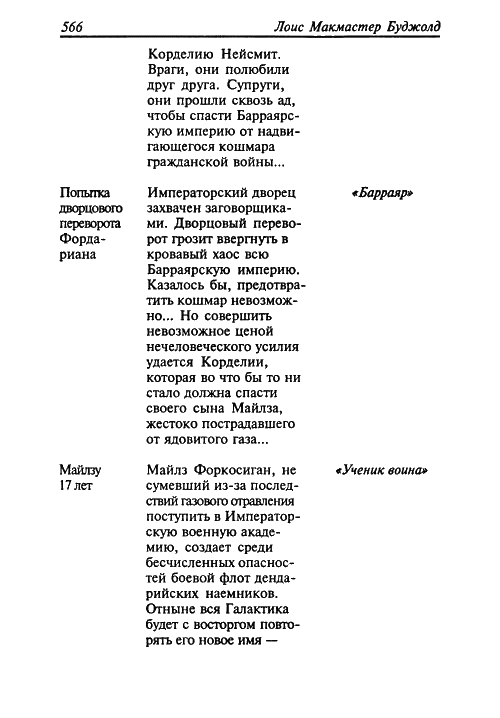 566 Лоис Макмастер Буджолд
Корделию Нейсмит.
Враги, они полюбили
друг друга. Супруги,
они прошли сквозь ад,
чтобы спасти Барраярс-
кую империю от надви-
гающегося кошмара
гражданской войны...
Попытка
дворцового
переворота
Форда-
риана
Императорский дворец
захвачен заговорщика-
ми. Дворцовый перево-
рот грозит ввергнуть в
кровавый хаос всю
Барраярскую империю.
Казалось бы, предотвра-
тить кошмар невозмож-
но... Но совершить
невозможное ценой
нечеловеческого усилия
удается Корделии,
которая во что бы то ни
стало должна спасти
своего сына Майлза,
жестоко пострадавшего
от ядовитого газа...
«Барраяр»
Майлзу
17 лет
Майлз Форкосиган, не
сумевший из-за послед-
ствий газового отравления
поступить в Император-
скую военную акаде-
мию, создает среди
бесчисленных опаснос-
тей боевой флот денда-
рийских наемников.
Отныне вся Галактика
будет с восторгом повто-
рять его новое имя —
«Ученик воина»